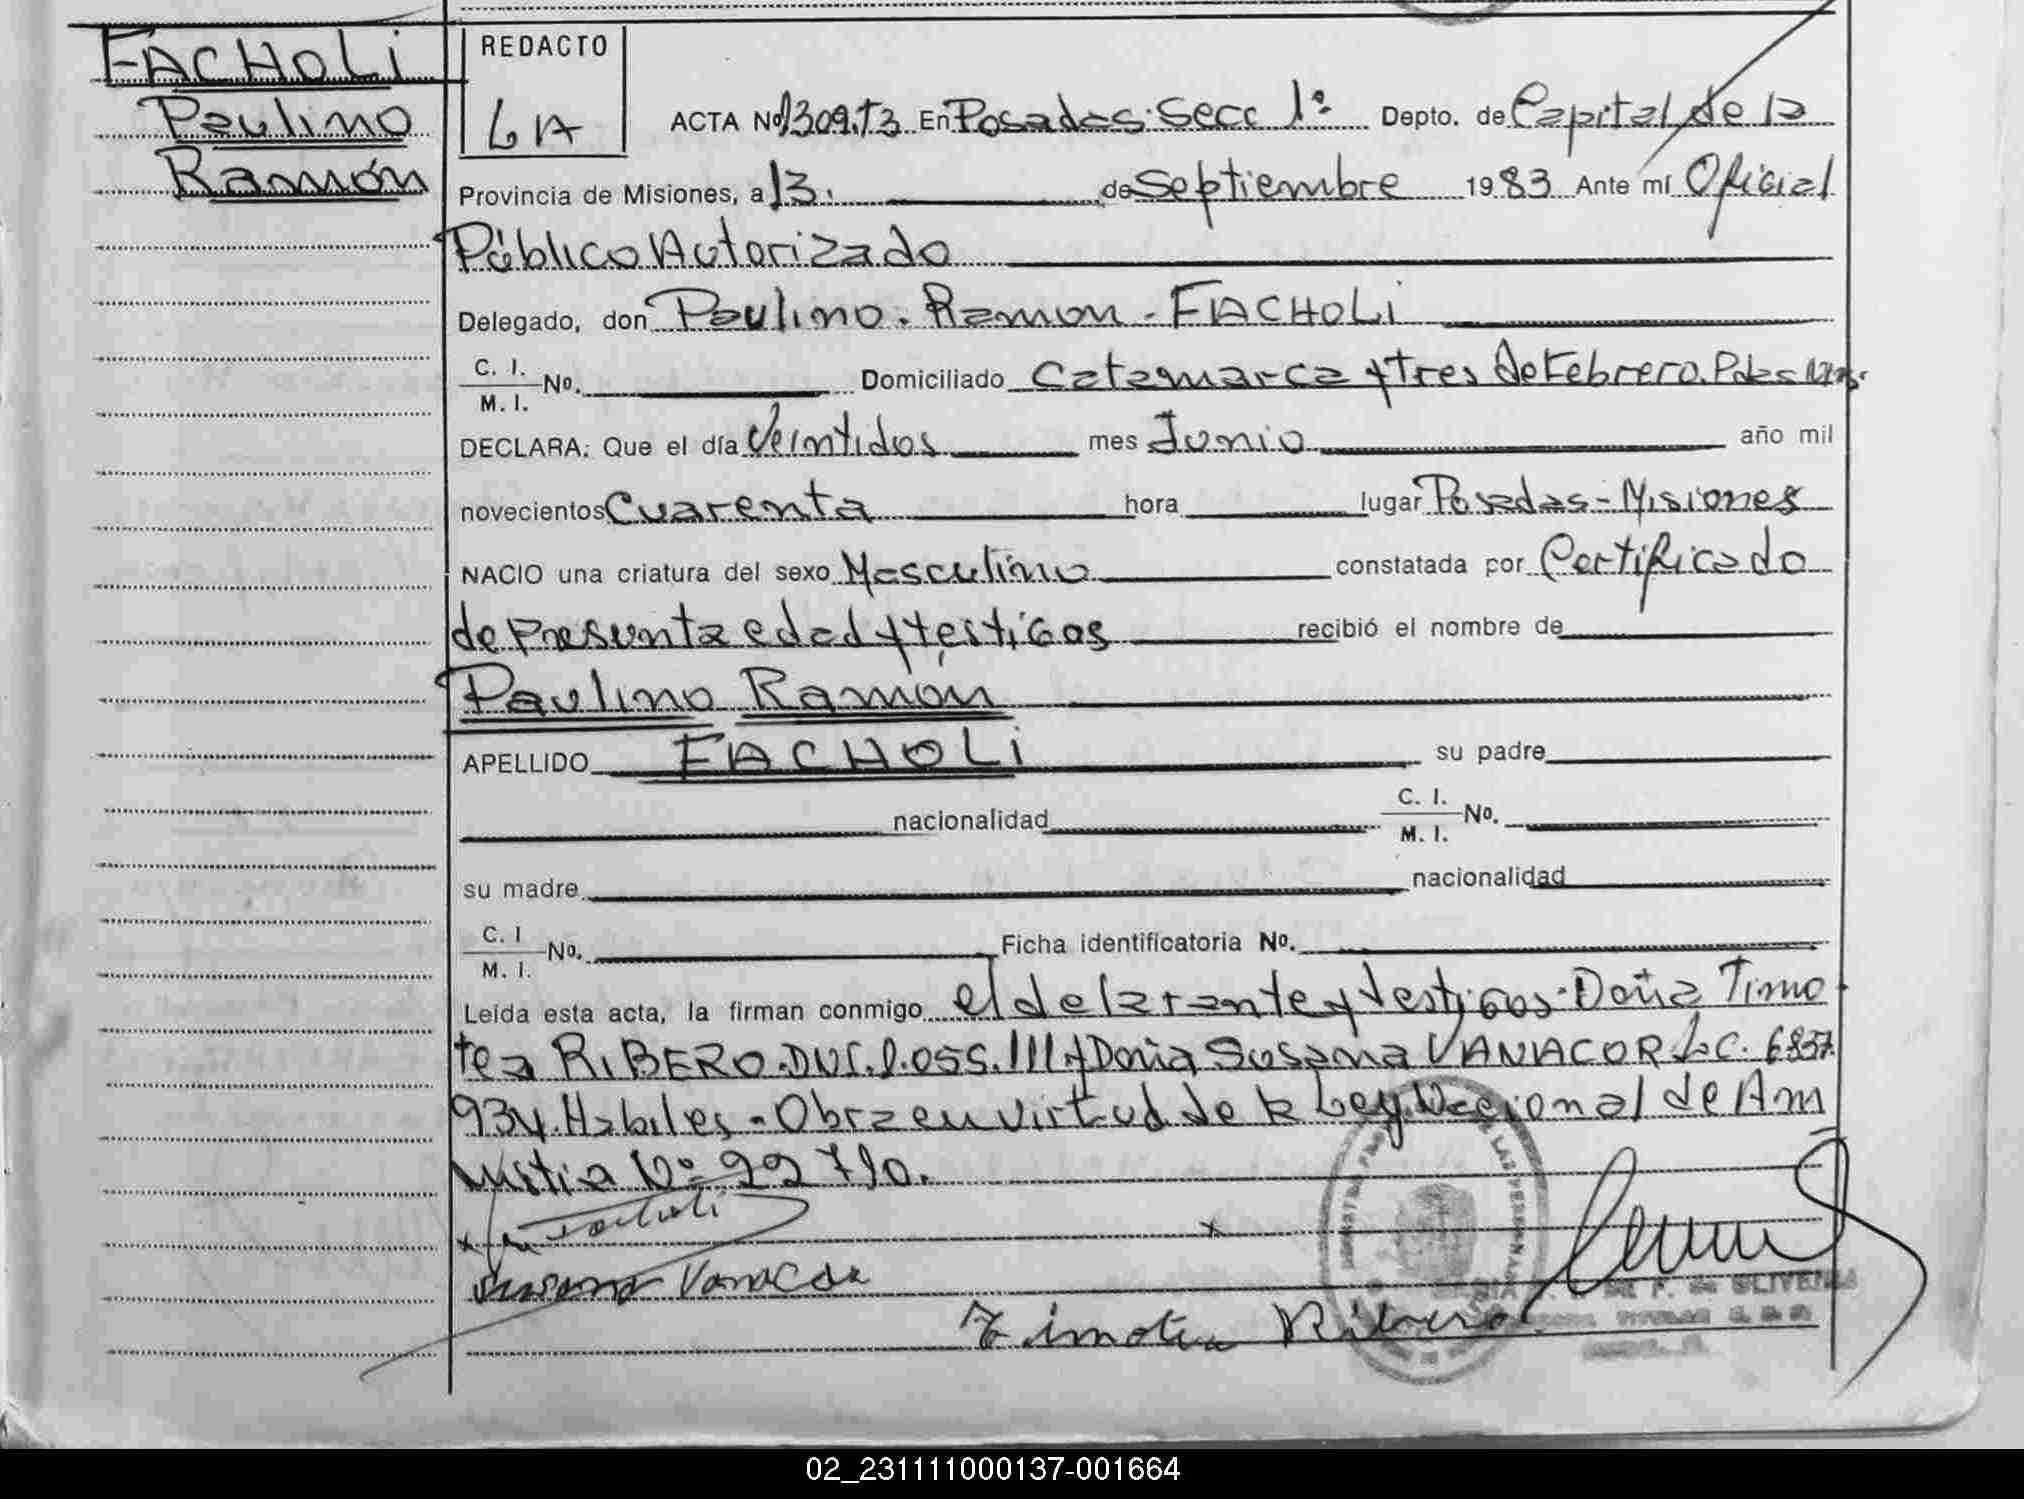 FACHOLI
Paulino
Ramón
REDACTO
LA
ACTA Nº 1309.T3. En Posadas. Secc 1º Depto. de Capital de la
Provincia de Misiones, a 13. de Septiembre 1983 Ante mí Oficial
Público Autorizado
Delegado, don Paulino. Ramon. FACHOLI
C. I.
M. I. Nº. Domiciliado Catamarca y Tres de Febrero. Pdas Mnes.
DECLARA: Que el día Veintidos mes Junio año mil
novecientos Cuarenta hora lugar Posadas - Misiones
NACIO una criatura del sexo Masculino constatada por Certificado
de Presunta edad y testigos recibió el nombre de
Paulino Ramón
APELLIDO FACHOLI su padre
nacionalidad C. I.
M. I. Nº.
su madre nacionalidad
C. I
M. I. Nº. Ficha identificatoria Nº.
Leída esta acta, la firman conmigo el delarante y testigos. Doña Timo
tea RIBERO. DNI. 1.055.111 y Doña Susana VANACOR L.C. 6837
934. Habiles. Obra en virtud de la Ley Nacional de Am
nistia Nº 22710.
Facholi
Susana Vanacor
Timotea Ribero
DE P. de OLIVEIRA
02_231111000137-001664